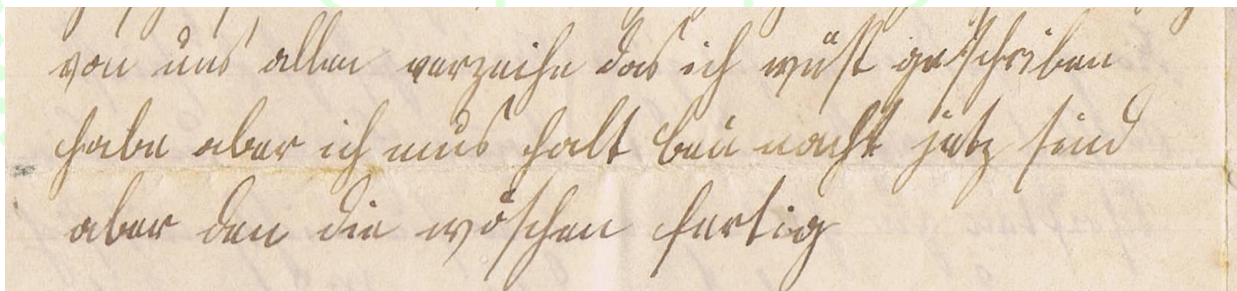 von uns allen verzeihe das ich wüst geschriben
habe aber ich mus halt bei nacht jetz sind
aber den die wöschen fertig